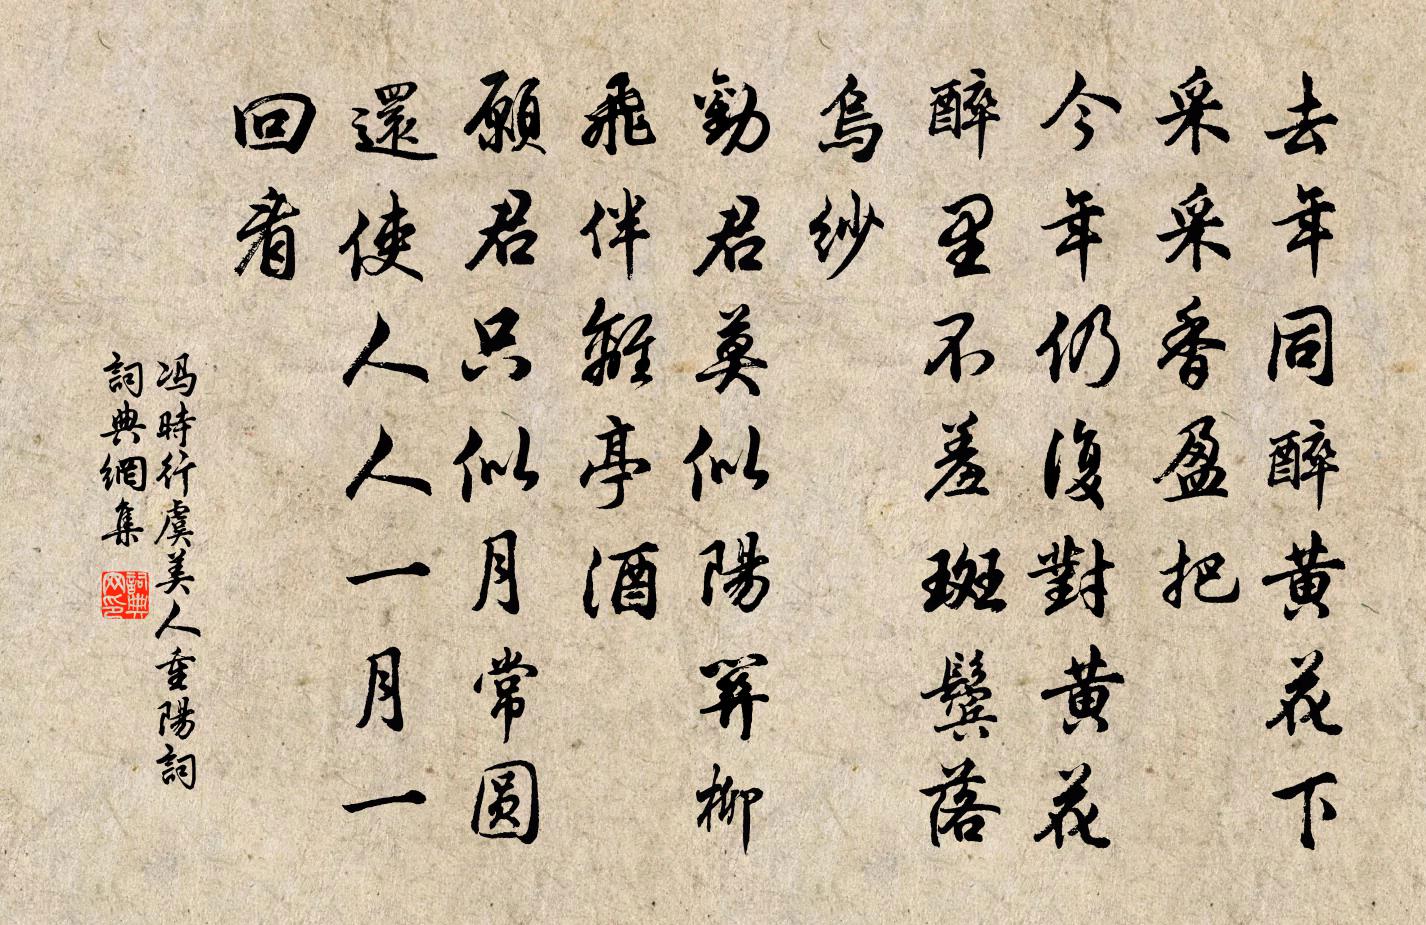 去年同醉黄花下
采采香盈把
今年仍復對黄花
醉里不羞斑鬓落
烏紗
勸君莫似陽關柳
飛伴離亭酒
願君只似月常圆
還使人人一月一
回看
冯時行虞美人重陽詞
詞典網集
詞典网印